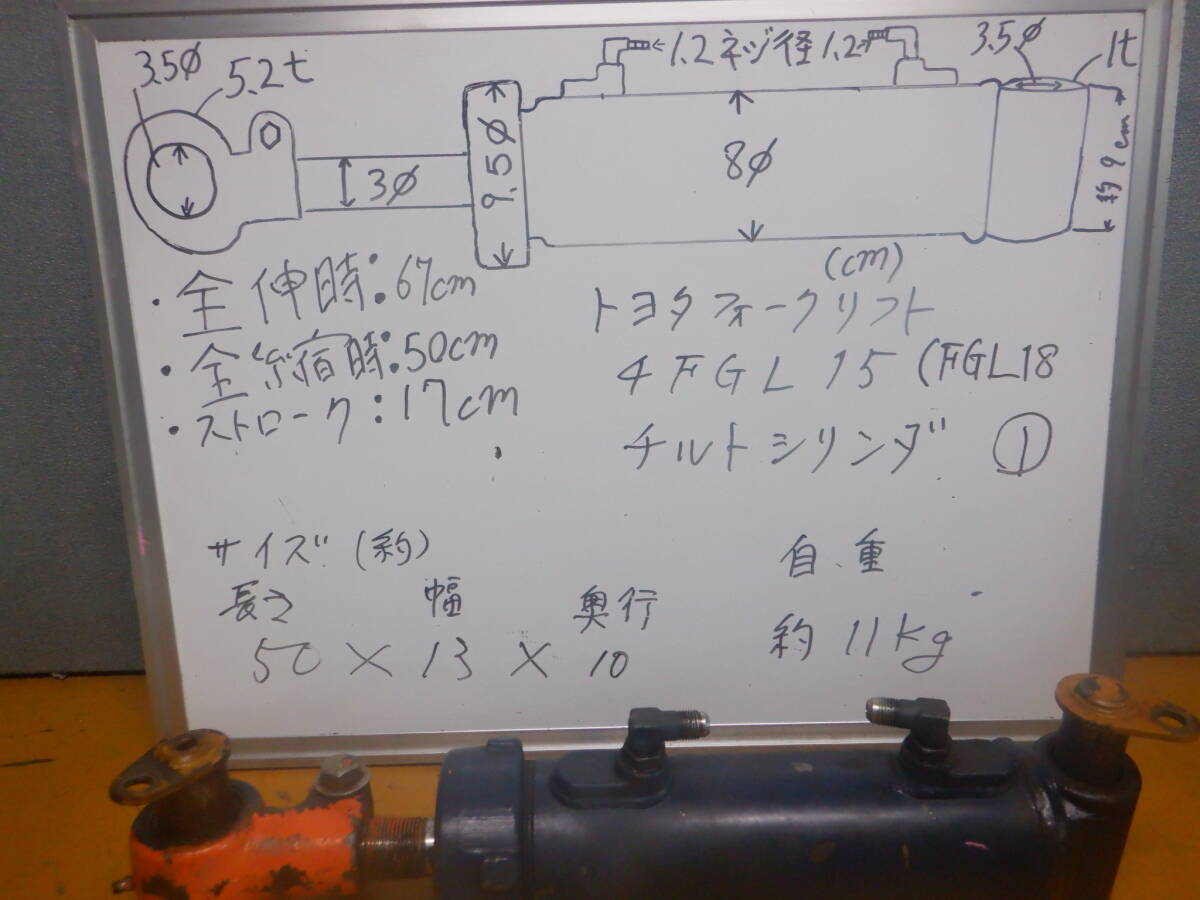 3.5φ
5.2t
1.2ネジ径1.2
3.5φ
1t
3φ
9.5φ
8φ
約9cm
(cm)
・全伸時:67cm
・全縮時:50cm
・ストローク:17cm
トヨタフォークリフト
4FGL15(FGL18
チルトシリンダ ①
サイズ(約)
長さ 幅 奥行
50×13×10
自重
約11kg